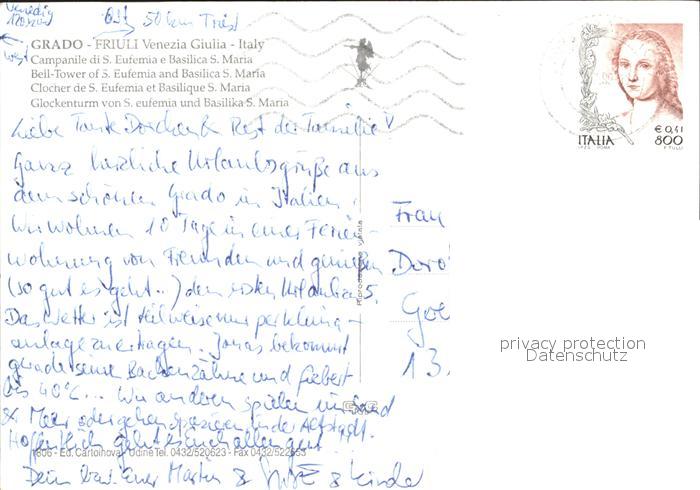 Venedig
120 km
Ost 50 km Triest
West
GRADO - FRIULI Venezia Giulia - Italy
Campanile di S. Eufemia e Basilica S. Maria
Bell-Tower of S. Eufemia and Basilica S. Maria
Clocher de S. Eufemia et Basilique S. Maria
Glockenturm von S. eufemia und Basilika S. Maria
ITALIA
€ 0,41
800
Liebe Tante Dorchen & Rest der Familie
Ganz herzliche Urlaubsgrüße aus
dem schönen Grado in Italien.
Wir wohnen 10 Tage in einer Ferien-
wohnung von Freunden und genießen
(so gut es geht..) den ersten Urlaub zu 5.
Das Wetter ist teilweise nur per Klima-
anlage zu ertragen. Jonas bekommt
gerade seine Backenzähne und Fiebert
bis 40°C... Wir anderen spielen im Sand
& Meer oder gehen spazieren in der Altstadt.
Hoffentlich geht es euch allen gut.
Dein bzw. Euer Martin & & Kinder
Frau
Doro
Goe
13.
privacy protection
Datenschutz
1806 - Ed. Cartolnova - Udine Tel. 0432/520623 - Fax 0432/522653